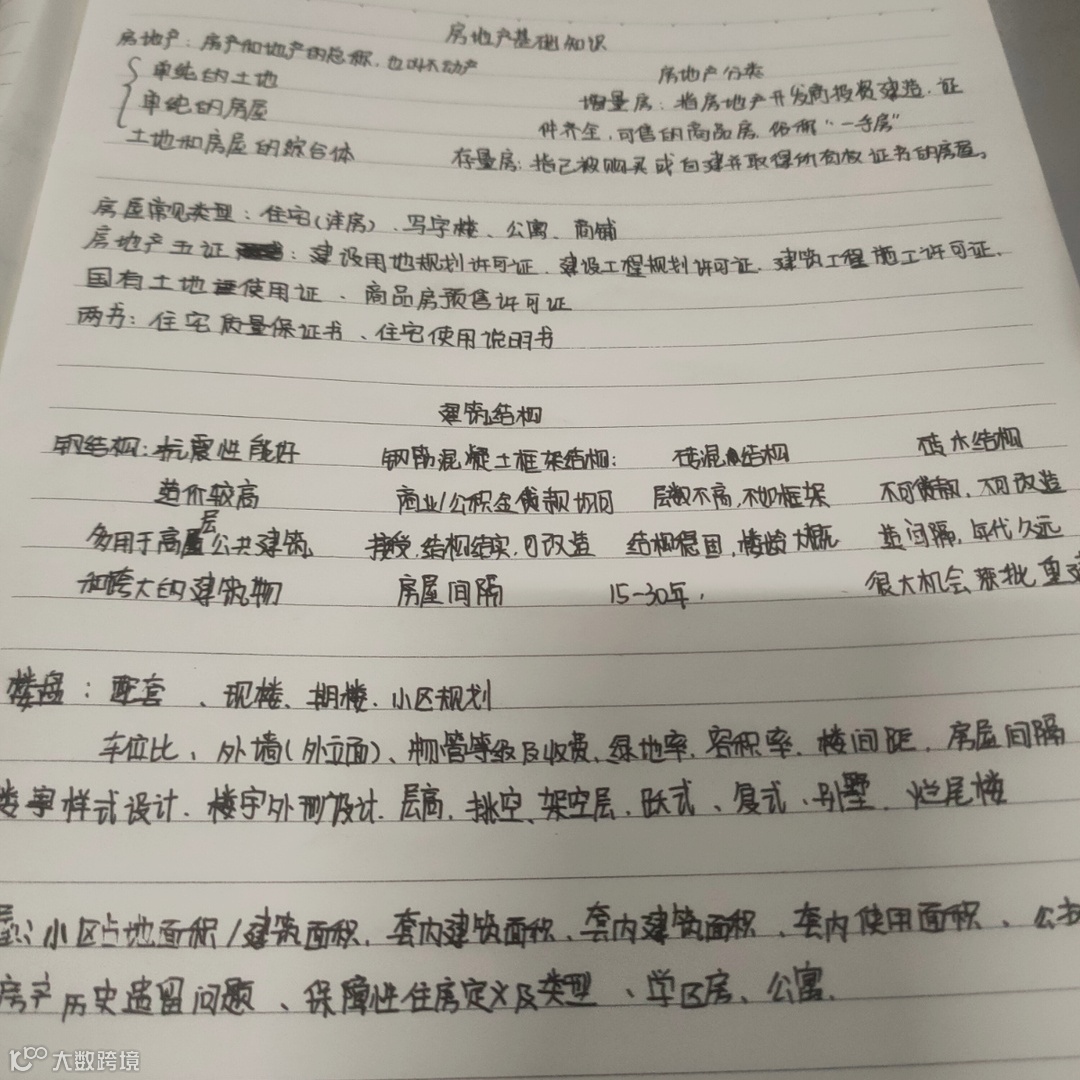 房地产基础知识
房地产：房产和地产的总称，也叫不动产
单纯的土地
单纯的房屋
土地和房屋的综合体
房地产分类
增量房：指房地产开发商投资建造，证
件齐全，可售的商品房，俗称“一手房”
存量房：指已被购买或自建并取得所有权证书的房屋。
房屋常见类型：住宅(洋房)、写字楼、公寓、商铺
房地产五证：建设用地规划许可证、建设工程规划许可证、建筑工程施工许可证、
国有土地使用证、商品房预售许可证
两书：住宅质量保证书、住宅使用说明书
建筑结构
钢结构：抗震性能好
造价较高
多用于高层公共建筑
和跨大的建筑物
钢筋混凝土框架结构：
商业/公积金贷款均可
接受，结构结实，可改造
房屋间隔
砖混结构
层数不高，不如框架
结构稳固，楼龄大概
15-30年，
砖木结构
不可贷款，不可改造
间隔，年代久远
很大机会获批重建
楼盘：配套、现楼、期楼、小区规划
车位比、外墙(外立面)、物管等级及收费、绿地率、容积率、楼间距、房屋间隔
楼宇样式设计、楼宇外形设计、层高、挑空、架空层、跃式、复式、别墅、烂尾楼
小区占地面积/建筑面积、套内建筑面积、套内建筑面积、套内使用面积、公
房产历史遗留问题、保障性住房定义及类型、学区房、公寓、
大数跨境